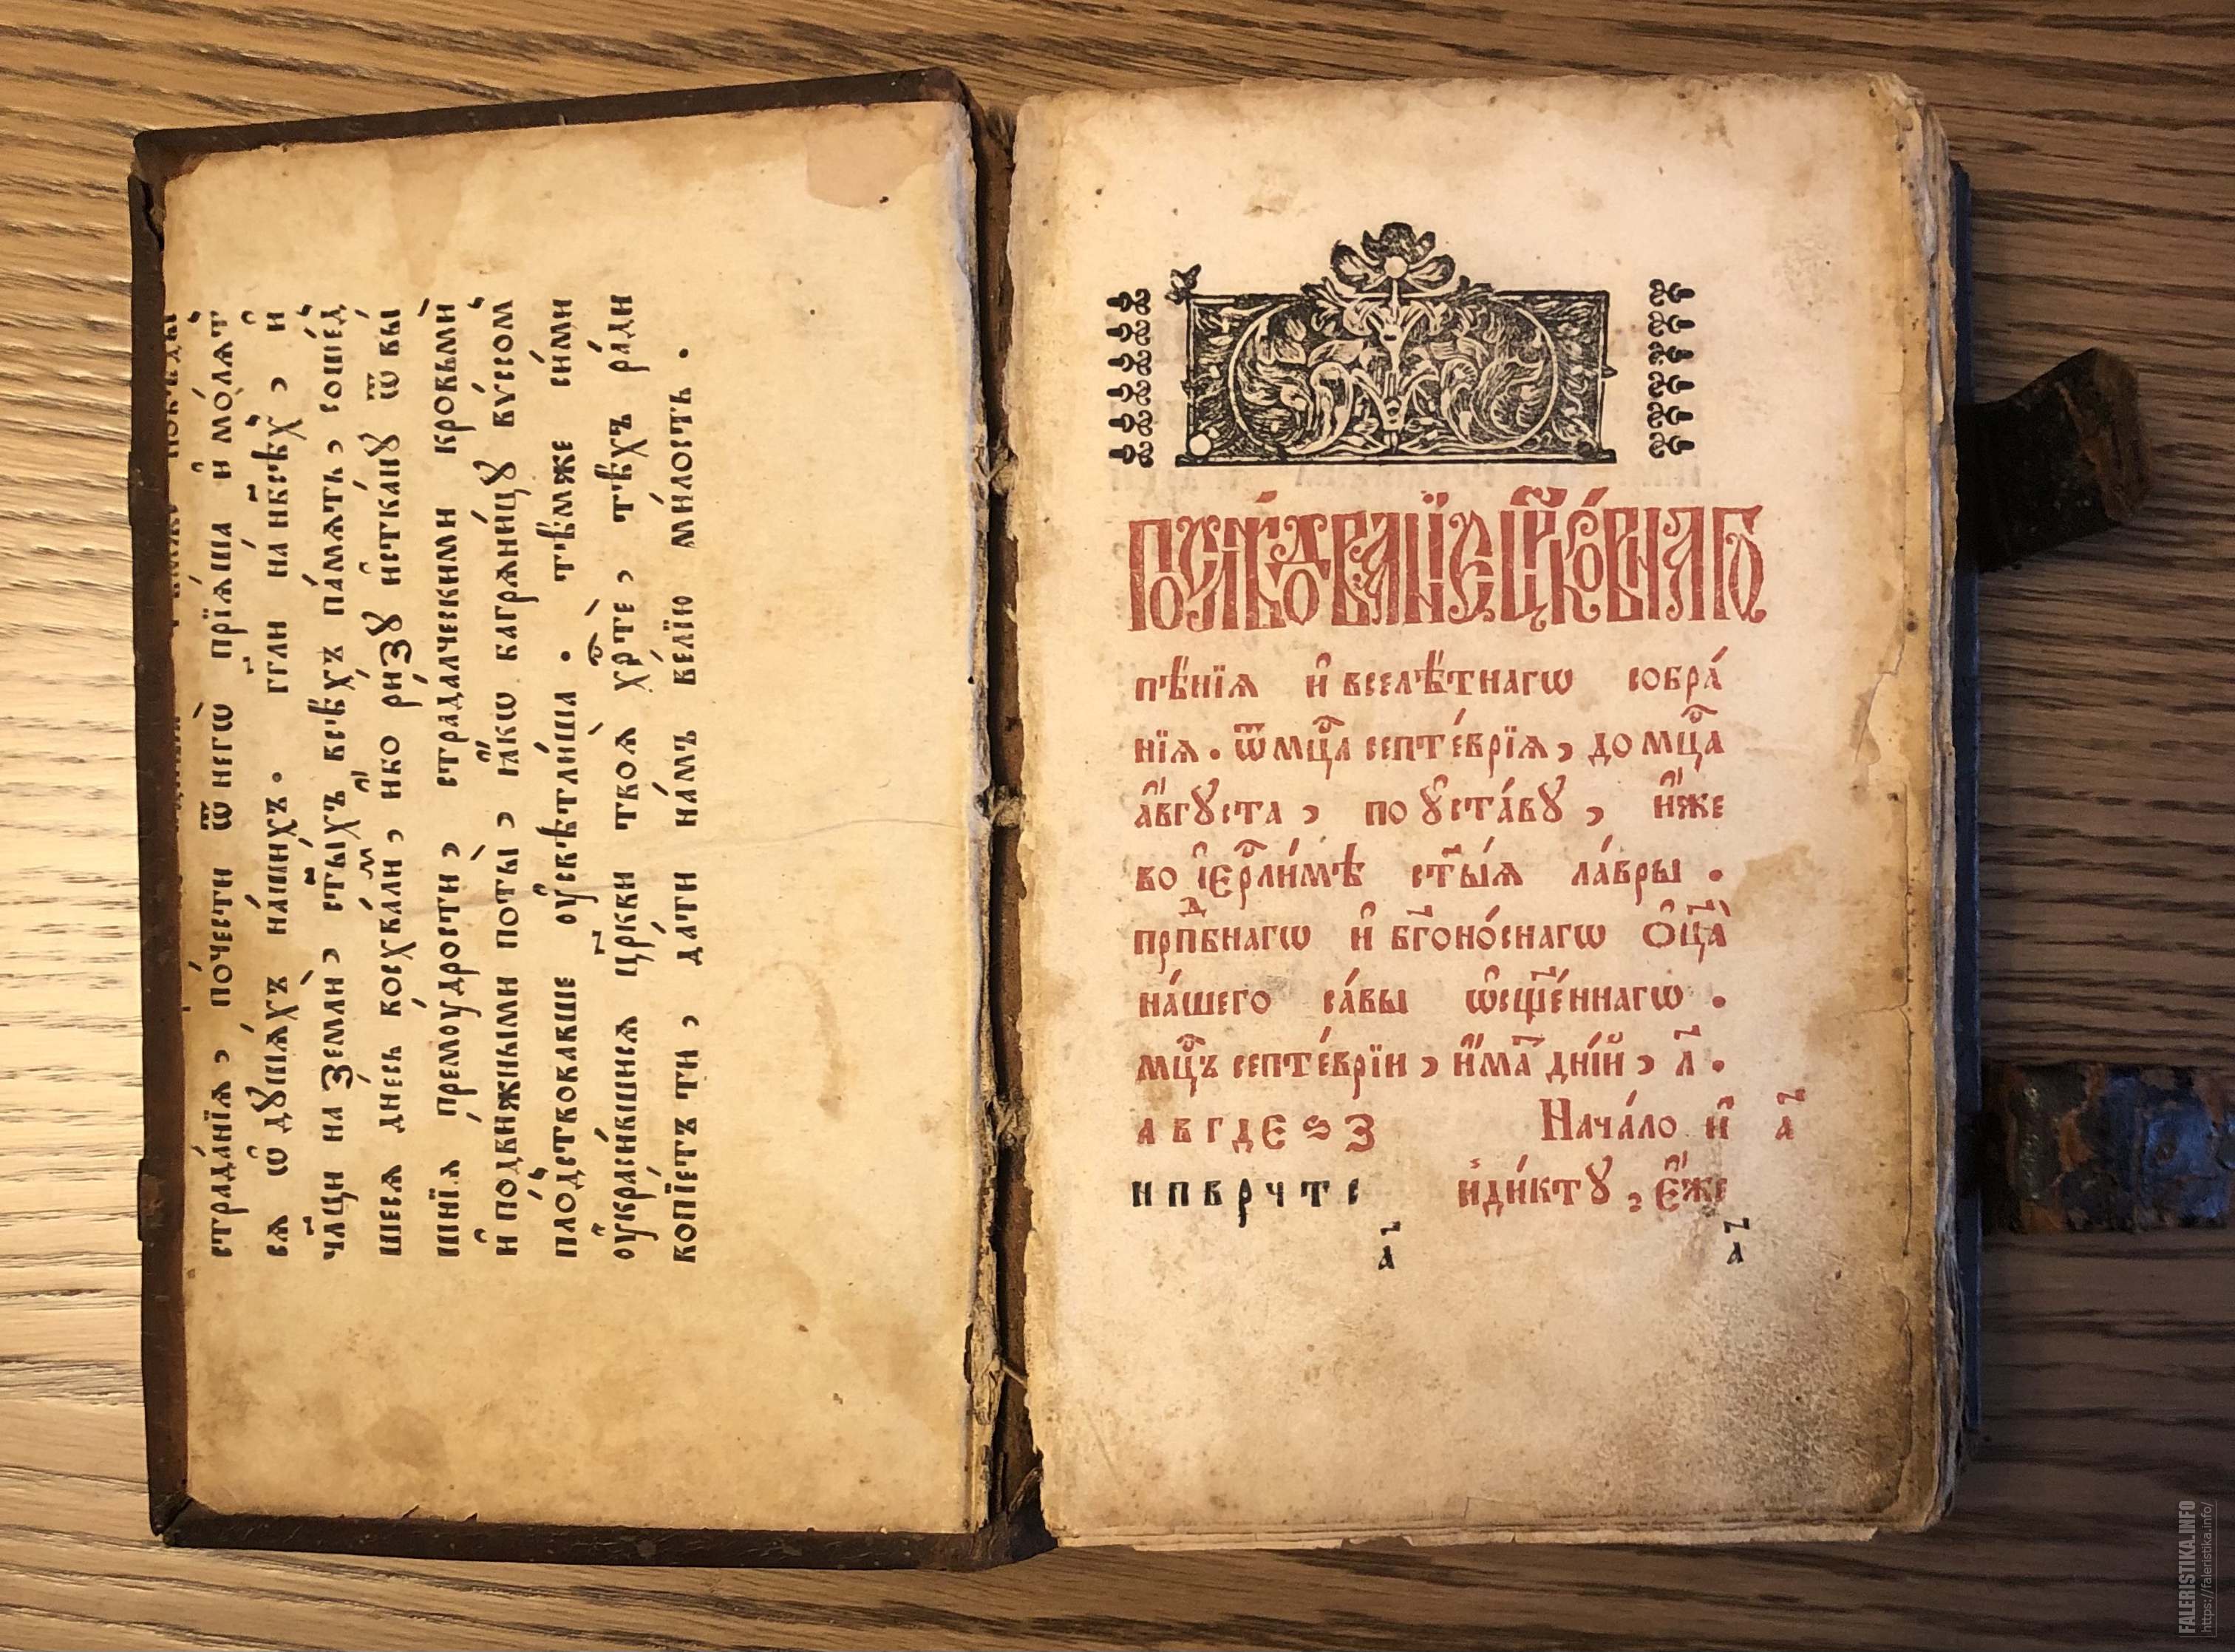 страда́нїѧ , по́чести ѿ негѡ̀ прїѧ́ша и҆ мо́лѧт̾
сѧ ѡ҆ дꙋша́хъ на́шихъ .
гг҃ли на́ нб҃сѣ́хъ , и҆
чл҃цы на землѝ , ст҃ы́хъ всѣ́хъ па́мѧть , сошед̾
шесѧ дне́сь восхва́ли́мъ , ꙗ҆́кѡ ри́зꙋ и҆стканꙋ ѿ вы́
шнїѧ премꙋ́дрости , страдалческими кровьмѝ
и҆ подви́жными поты̀ , ꙗ҆́кѡ багрѧни́цꙋ вѵ́сом̾
плодствовавше ᲂу҆свѣтли́ша . тѣ́мже си́ми
ᲂу҆краси́вшисѧ цр҃кви твоѧ̀ хрⷭ҇тѐ , тѣ́хъ ра́ди
вопїе́тъ ти , да́ти на́мъ ве́лїю ми́лость .
Послѣ́дованїе цр҃ко́внагѡ
пѣ́нїѧ и҆ вселѣ́тнагѡ собра́
нїѧ . ѿ мцⷭ҇а септе́врїѧ , до мцⷭ҇а
а҆́вгꙋста , по ᲂу҆ста́вꙋ , и҆́же
во і҆єрⷭ҇ли́мѣ ст҃ы́ѧ ла́вры .
прⷣпбнагѡ и҆ бг҃оно́снагѡ ѻ҆ц҃а̀
на́шего са́вы ѡ҆сщ҃е́ннагѡ .
мцⷭ҇ъ септе́врїи , и҆́мать дні́й , л҃ .
а в г д є ѕ з Нача́ло и҆ а҃
н п в р ч т с и҆нди́ктꙋ , є҆́же
а҃ а҃
FALERISTIKA.INFO
https://faleristika.info/